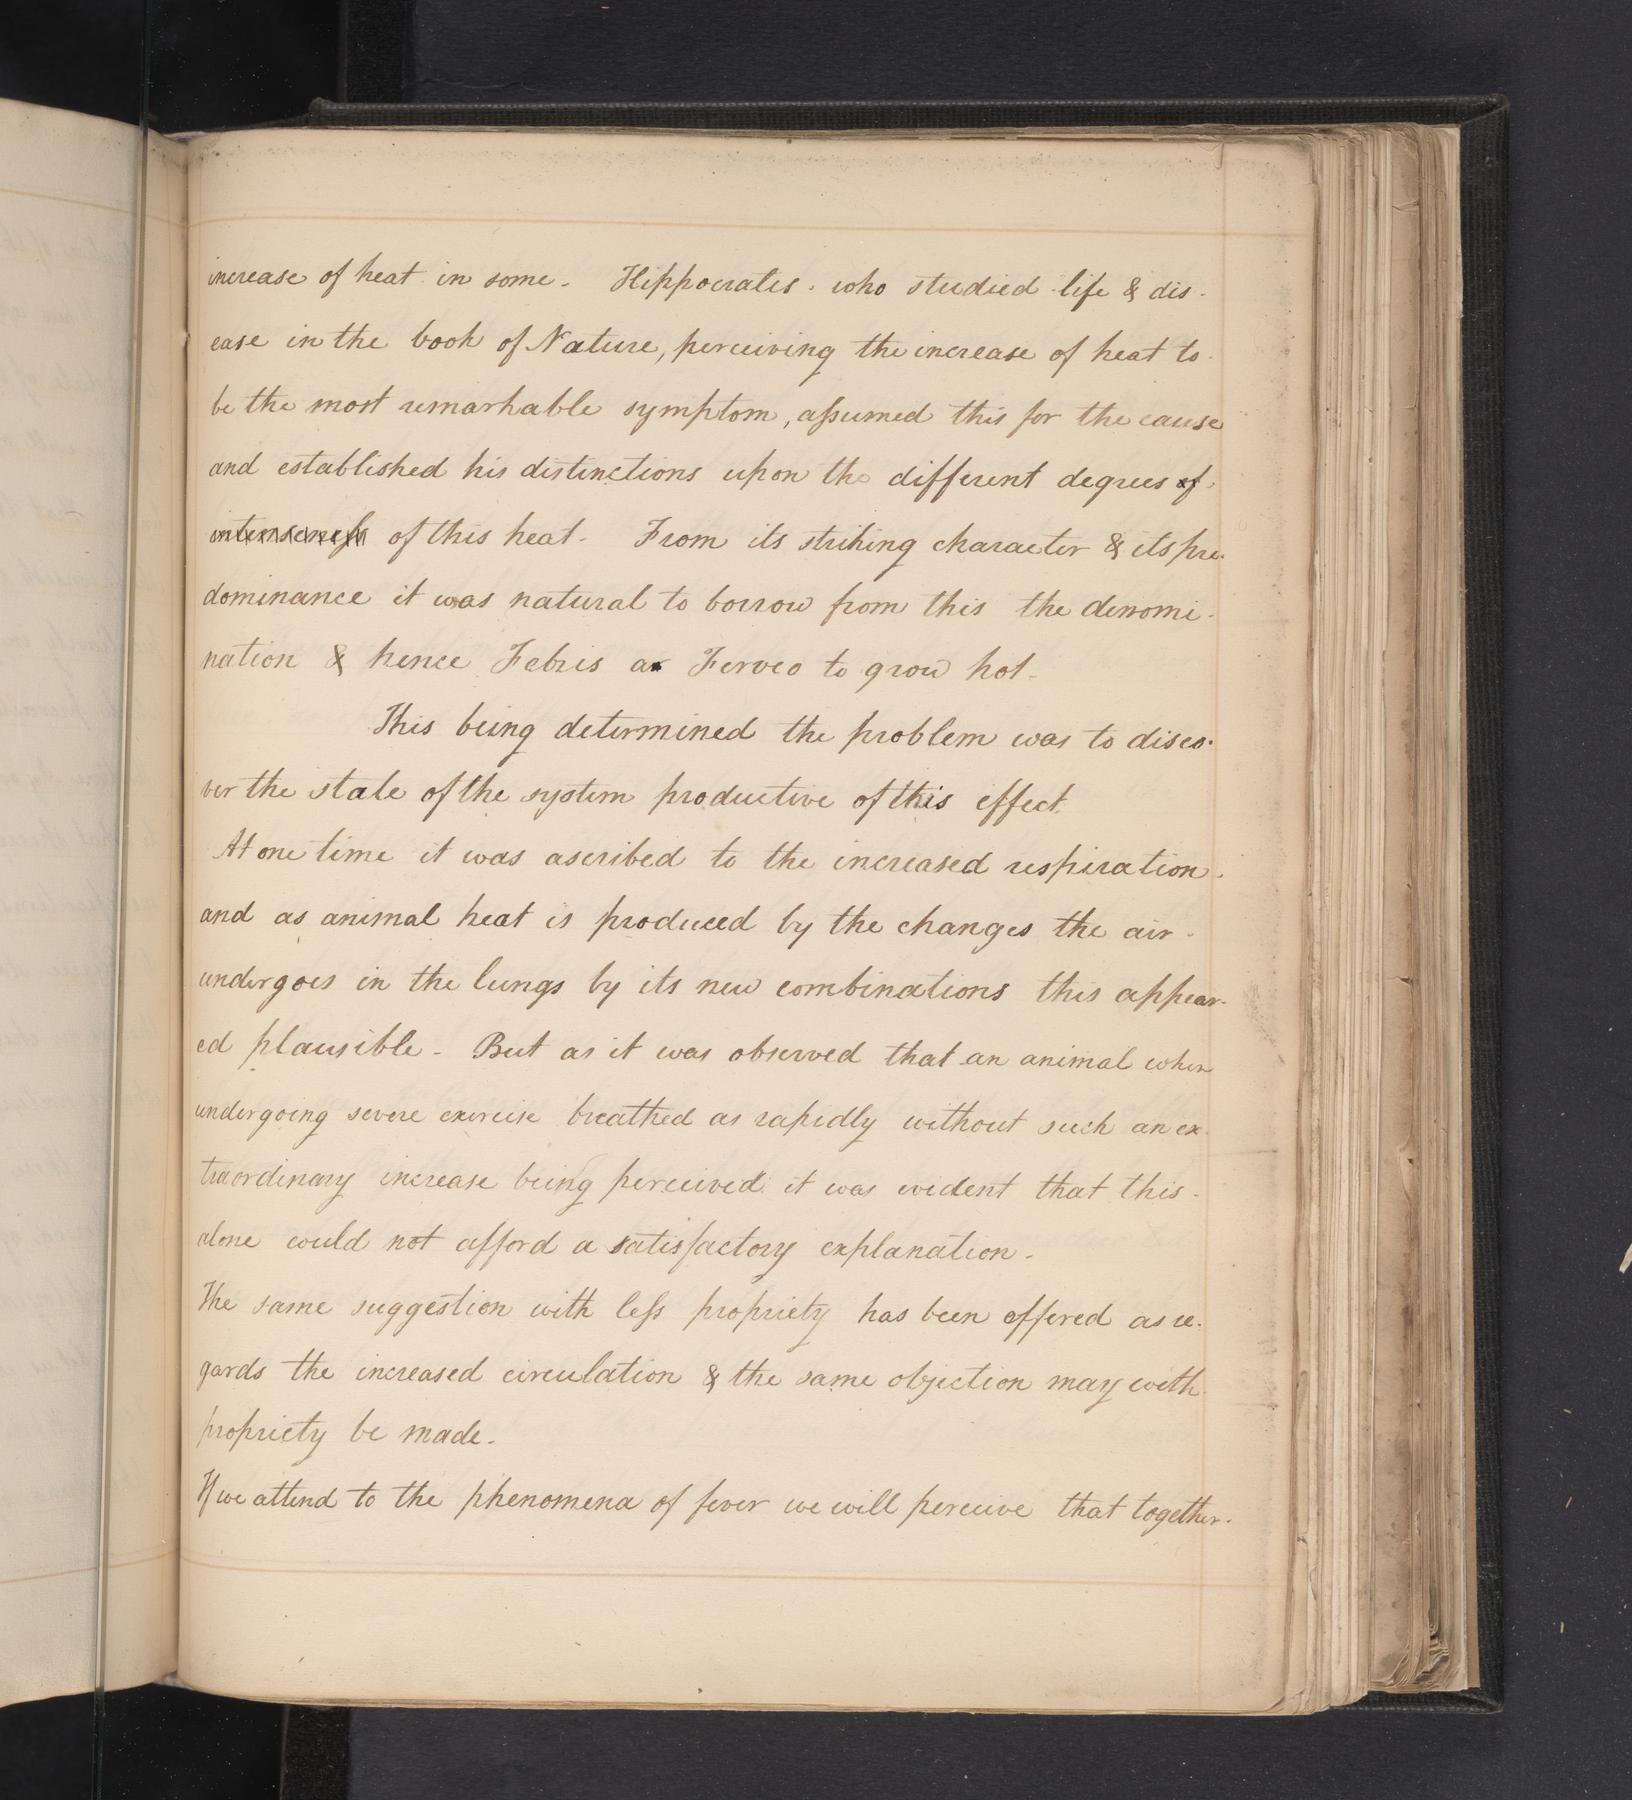 increase of heat in some - Hippocrates - who studied life & dis-
ease in the book of Nature, perceiving the increase of heat to
be the most remarkable symptom, assumed this for the cause
and established his distinctions upon the different degrees of
intenseness of this heat - From its striking character & its pre-
dominance it was natural to borrow from this the denomi-
nation & hence Febris a Ferveo to grow hot -
This being determined the problem was to disco-
ver the state of the system productive of this effect.
At one time it was ascribed to the increased respiration -
and as animal heat is produced by the changes the air -
undergoes in the lungs by its new combinations this appear-
ed plausible - But as it was observed that an animal when
undergoing severe exercise breathed as rapidly without such an ex-
traordinary increase being perceived it was evident that this -
alone could not afford a satisfactory explanation -
The same suggestion with less propriety has been offered as re-
gards the increased circulation & the same objection may with
propriety be made -
If we attend to the phenomena of fever we will perceive that together -